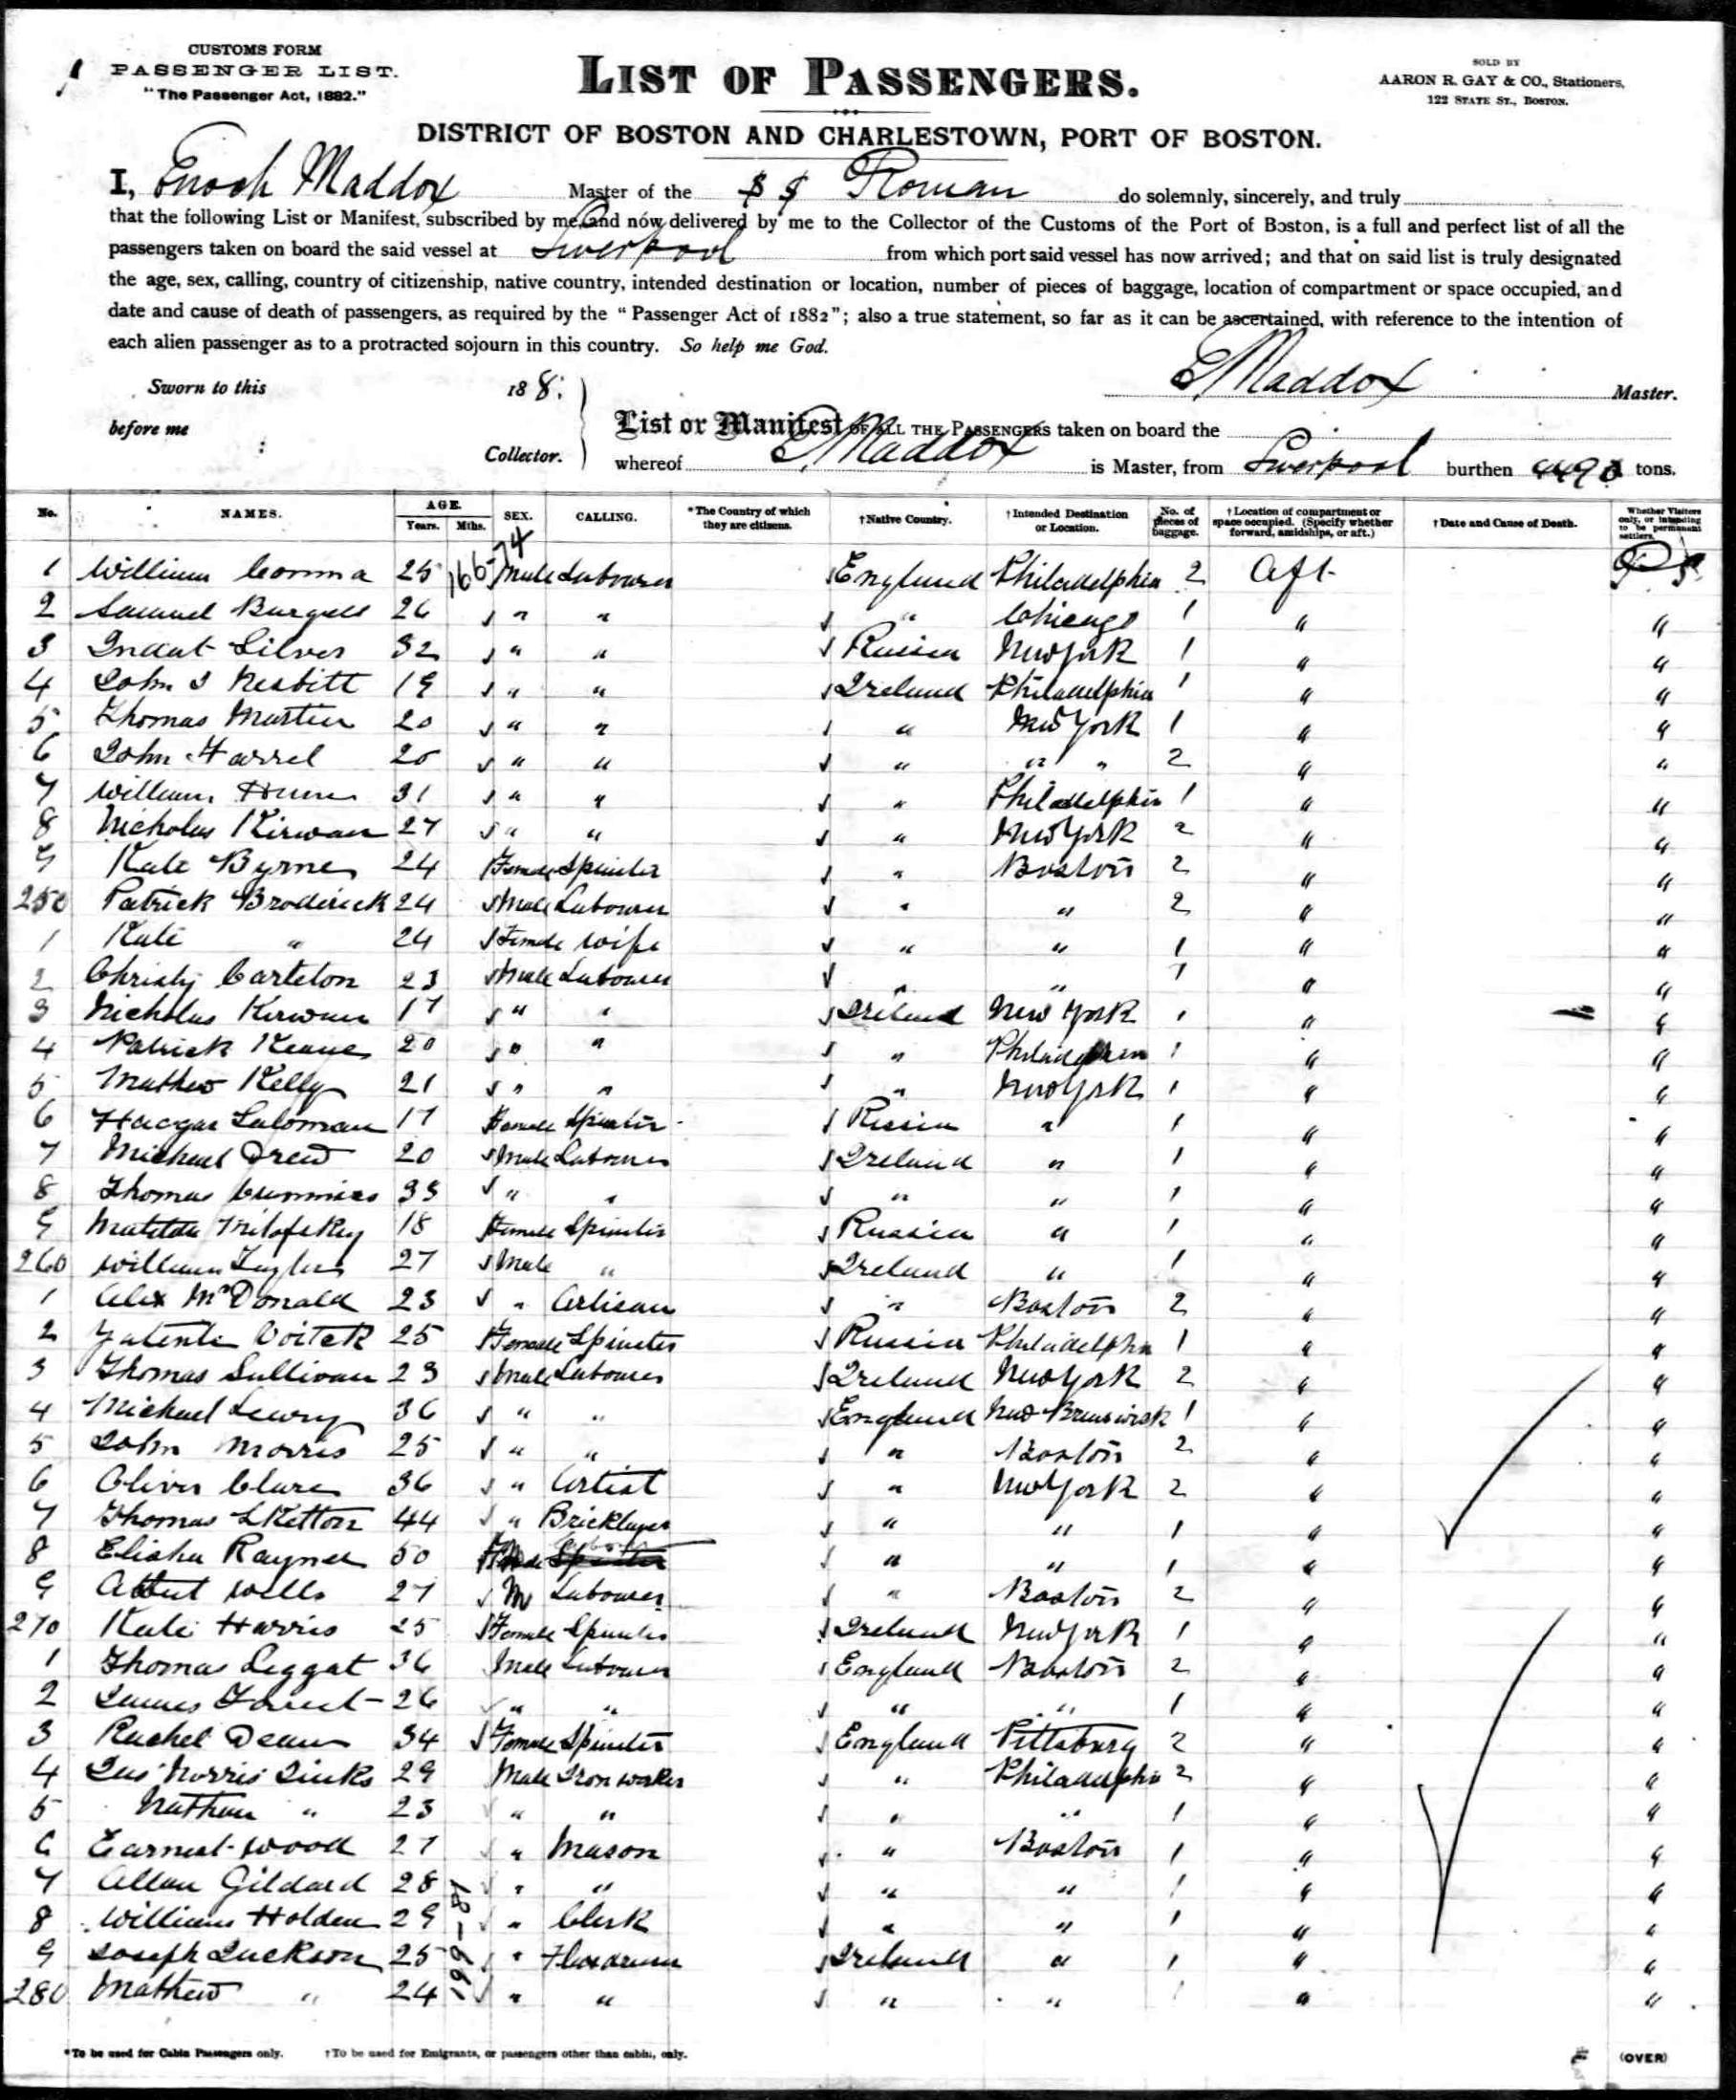 CUSTOMS FORM
PASSENGER LIST.
"The Passenger Act, 1882."
LIST OF PASSENGERS.
SOLD BY
AARON R. GAY & CO., Stationers,
122 STATE ST., BOSTON.
DISTRICT OF BOSTON AND CHARLESTOWN, PORT OF BOSTON.
I, Enoch Maddox Master of the SS Roman do solemnly, sincerely, and truly
that the following List or Manifest, subscribed by me, and now delivered by me to the Collector of the Customs of the Port of Boston, is a full and perfect list of all the
passengers taken on board the said vessel at Liverpool from which port said vessel has now arrived; and that on said list is truly designated
the age, sex, calling, country of citizenship, native country, intended destination or location, number of pieces of baggage, location of compartment or space occupied, and
date and cause of death of passengers, as required by the "Passenger Act of 1882"; also a true statement, so far as it can be ascertained, with reference to the intention of
each alien passenger as to a protracted sojourn in this country. So help me God.
E Maddox Master.
Sworn to this 188
before me
Collector.
List or Manifest OF ALL THE PASSENGERS taken on board the
whereof E Maddox is Master, from Liverpool burthen tons.
No. NAMES. AGE. Years. Mths. SEX. CALLING. *The Country of which they are citizens. †Native Country. †Intended Destination or Location. No. of pieces of baggage. †Location of compartment or space occupied. (Specify whether forward, amidships, or aft.) †Date and Cause of Death. Whether Visitors only, or intending to be permanent settlers.
1 William 25 Male Labourer England Philadelphia 2 Aft
2 Samuel Burgess 26 " " " Chicago 1 " "
3 Silver 32 " " Russia New York 1 " "
4 John J Nesbitt 19 " " Ireland Philadelphia 1 " "
5 Thomas Martin 20 " " " New York 1 " "
6 John Harrel 20 " " " " " 2 " "
7 William 31 " " " Philadelphia 1 " "
8 Nicholas Kirwan 27 " " " New York 2 " "
9 Kate Byrne 24 Female Spinster " Boston 2 " "
250 Patrick Broderick 24 Male Labourer " " 2 " "
1 Kate " 24 Female Wife " " 1 " "
2 Christy Carleton 23 Male Labourer " " 1 " "
3 Nicholas Kirwan 17 " " Ireland New York 1 " "
4 Patrick Keane 20 " " " Philadelphia 1 " "
5 Mathew Kelly 21 " " " New York 1 " "
6 Saloman 17 Female Spinster Russia " 1 " "
7 Michael Drew 20 Male Labourer Ireland " 1 " "
8 Thomas Cummins 33 " " " " 1 " "
9 Matilda Milofsky 18 Female Spinster Russia " 1 " "
260 William 27 Male " Ireland " 1 " "
1 Alex McDonald 23 " Artisan " Boston 2 " "
2 Voitek 25 Female Spinster Russia Philadelphia 1 " "
3 Thomas Sullivan 23 Male Labourer Ireland New York 2 " "
4 Michael 36 " " England New Brunswick 1 " "
5 John Morris 25 " " " Boston 2 " "
6 Oliver Clare 36 " Artist " New York 2 " "
7 Thomas Sketton 44 " Bricklayer " " 1 " "
8 Elisha Rayner 50 " " 1 " "
9 Albert Wells 27 M Labourer " Boston 2 " "
270 Kate Harris 25 Female Spinster Ireland New York 1 " "
1 Thomas Leggat 36 Male Labourer England Boston 2 " "
2 James 26 " " " " 1 " "
3 Rachel Dean 34 Female Spinster England Pittsburg 2 " "
4 Jas Norris Jinks 29 Male Iron worker " Philadelphia 2 " "
5 Nathan " 23 " " " " 1 " "
6 Earnest Wood 27 " Mason " Boston 1 " "
7 Allan Gildard 28 " " " " 1 " "
8 William Holden 29 " Clerk " " 1 " "
9 Joseph Jackson 25 " Ireland " 1 " "
280 Mathew " 24 " " " " 1 " "
*To be used for Cabin Passengers only. †To be used for Emigrants, or passengers other than cabin, only.
(OVER)